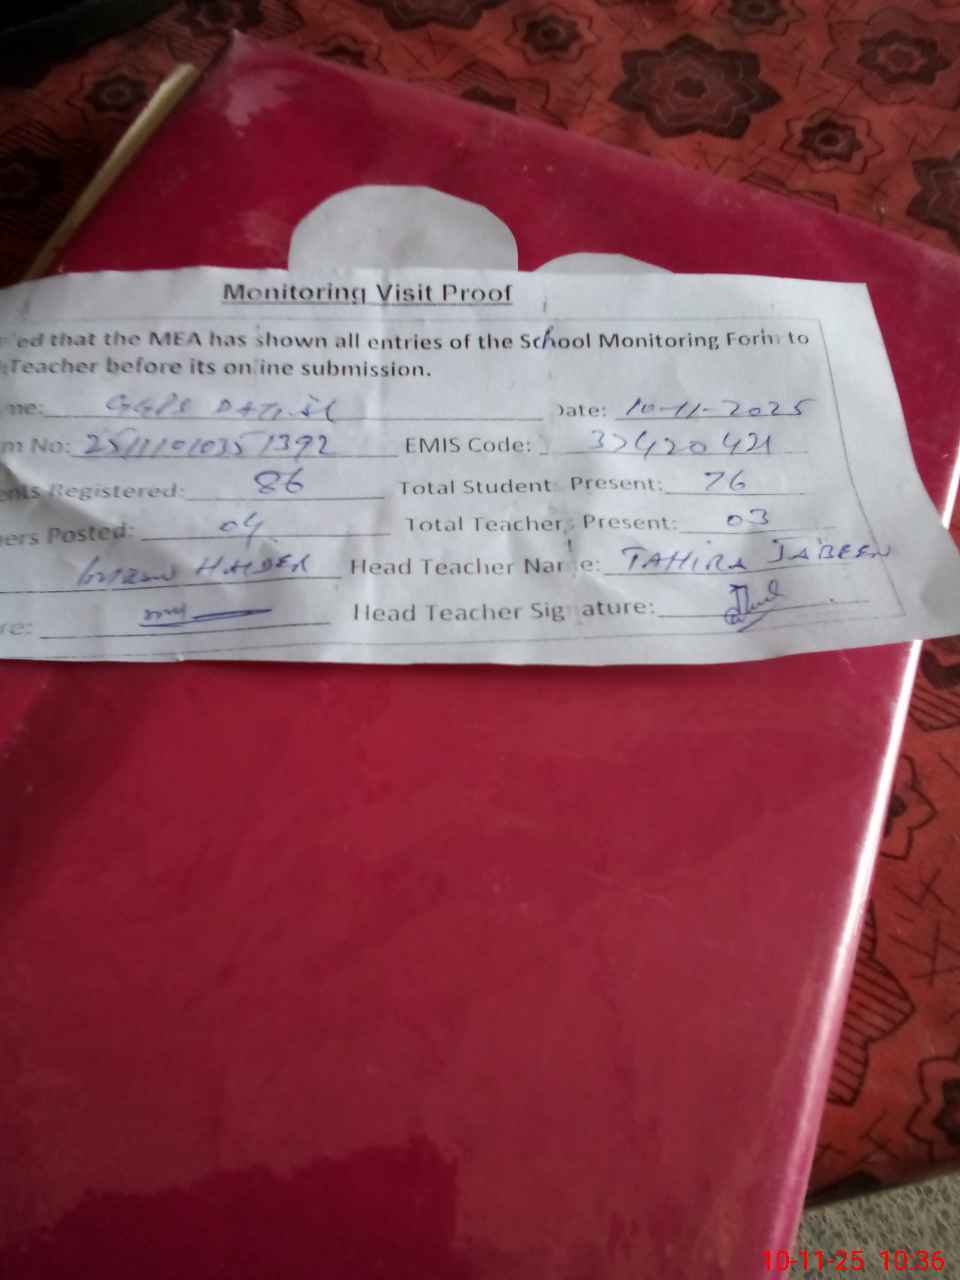 Monitoring Visit Proof
ed that the MEA has shown all entries of the School Monitoring Form to
Teacher before its online submission.
me: GGPS Date: 10-11-2025
m No: 25111010351392 EMIS Code: 32420421
ents Registered: 86 Total Student Present: 76
ers Posted: 04 Total Teachers Present: 03
HAIDER Head Teacher Name: TAHIRA JABEEN
re: Head Teacher Signature:
10-11-25 10:36